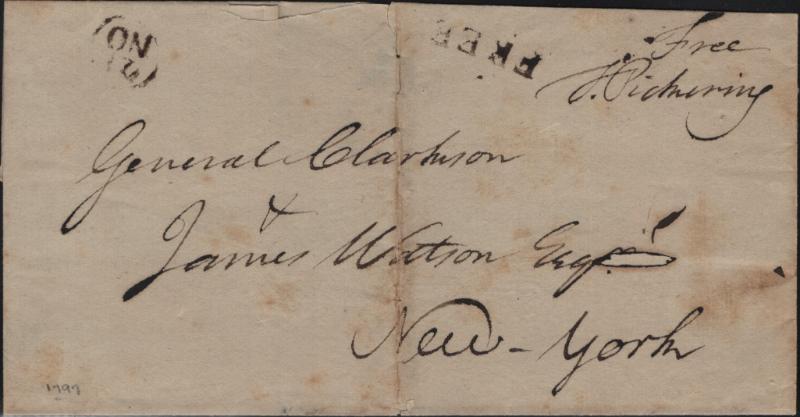 NO
FREE
Free
T. Pickering
General Clarkson
&
James Watson Esqrs
New-York
1797